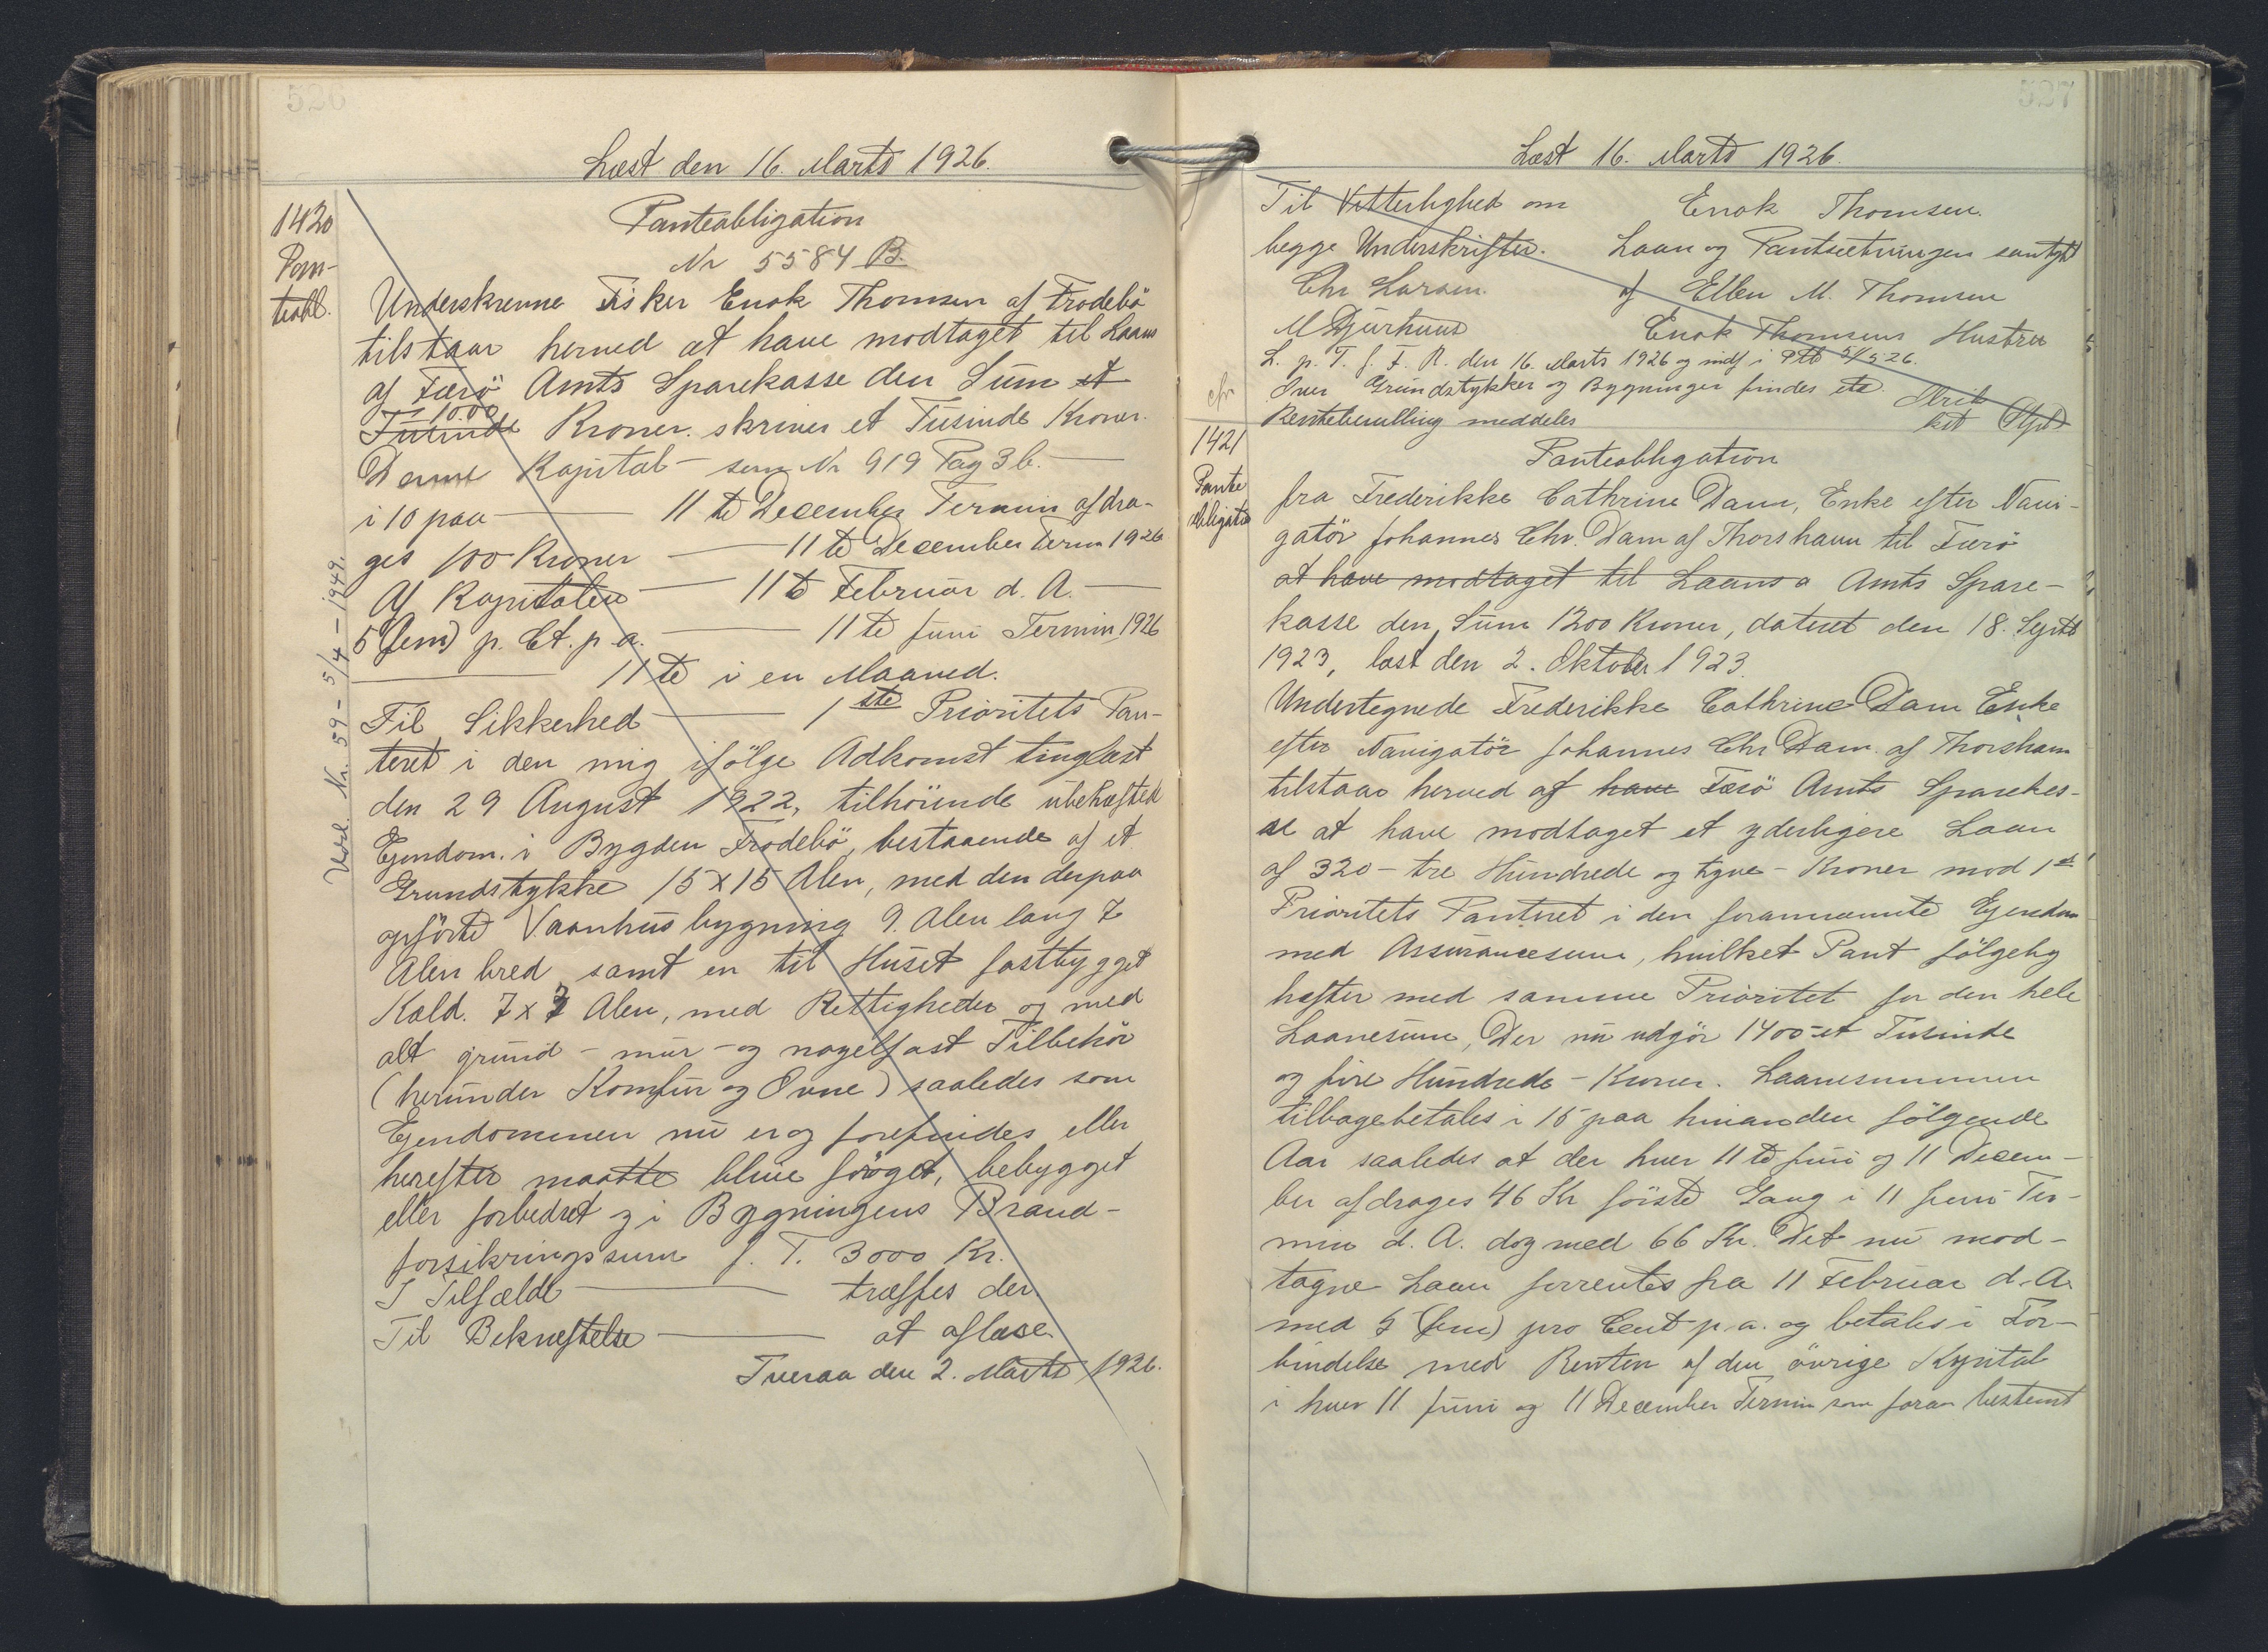 526
Læst den 16. Marts 1926.
1420
Pan-
teobl.
Panteobligation
Nr 5584 B.
Underskrevne Fisker Enok Thomsen af Frodebö
tilstaar herved at have modtaget til Laans
af Færö Amts Sparekasse den Sum et
1000
Tusinde Kroner. skriver et Tusinde Kroner.
Denne Kapital — som Nr 919 Pag 36. —
i 10 paa — 11te December Termin afdra-
ges 100 Kroner — 11te December Term 1926
Af Kapitalen — 11te Februar d. A. —
5 (fem) p. Ct. p. a. — 11te Juni Termin 1926
— 11te i en Maaned.
Til Sikkerhed — 1ste Prioritets Pan-
teret i den mig ifölge Adkomst tinglæst
den 29 August 1922, tilhörende ubehæftede
Ejendom. i Bygden Frodebö, bestaaende af et
Grundstykke 15 x 15 Alen, med den derpaa
opförte Vaanhusbygning 9. Alen lang 7
Alen bred samt en til Huset fastbygget
Kald. 7 x 7 Alen, med Rettigheder og med
alt grund - mur - og nagelfast Tilbehör
(herunder Komfur og Ovne) saaledes som
Ejendommen nu er og forefindes eller
herefter maatte blive foröget, bebygget
eller forbedret og i Bygningens Brand-
forsikringssum f. T. 3000 Kr.
I Tilfælde — træffes der
Til Bekræftelse — at aflæse
Tveraa den 2. Marts 1926.
Udsl. Nr. 59 - 5/4 - 1949.
527
Læst 16. Marts 1926.
Til Vitterlighed om Enok Thomsen.
begge Underskrifter. Laan og Pantsætningen samtykt
Chr Larsen. af Ellen M. Thomsen
M Djurhuus Enok Thomsens Hustru
L. p. T. f. F. R. den 16. Marts 1926 og indf i Ptb 5/5 26.
cfr
Over Grundstykker og Bygninger findes etc.
Rentebevilling meddeles
1421
Pante
obligation
Panteobligation
fra Frederikke Cathrine Dam, Enke efter Navi-
gatör Johannes Chr. Dam af Thorshavn til Færö
at have modtaget til Laans a Amts Spare-
kasse den Sum 1200 Kroner, dateret den 18. Septb
1923, læst den 2. Oktober 1923.
Undertegnede Frederikke Cathrine Dam Enke
efter Navigatör Johannes Chr Dam af Thorshavn
tilstaar herved af have Færö Amts Sparekas-
se at have modtaget et yderligere Laan
af 320 - tre Hundrede og tyve - Kroner mod 1ste
Prioritets Panteret i den forannævnte Ejendom
med Assurancesum, hvilket Pant fölgelig
hæfter med samme Prioritet for den hele
Laanesum, Der nu udgör 1400 - et Tusinde
og fire Hundrede - Kroner. Laanesummen
tilbagebetales i 15 paa hinanden fölgende
Aar saaledes at der hver 11te Juni og 11 Decem-
ber afdrages 46 Kr förste Gang i 11 Juni Ter-
min d. A. dog med 66 Kr. Det nu mod-
tagne Laan forrentes fra 11 Februar d. A.
med 5 (fem) pro Cent p. a. og betales i For-
bindelse med Renten af den övrige Kapital
i hver 11 Juni og 11 December Termin som foran bestemt